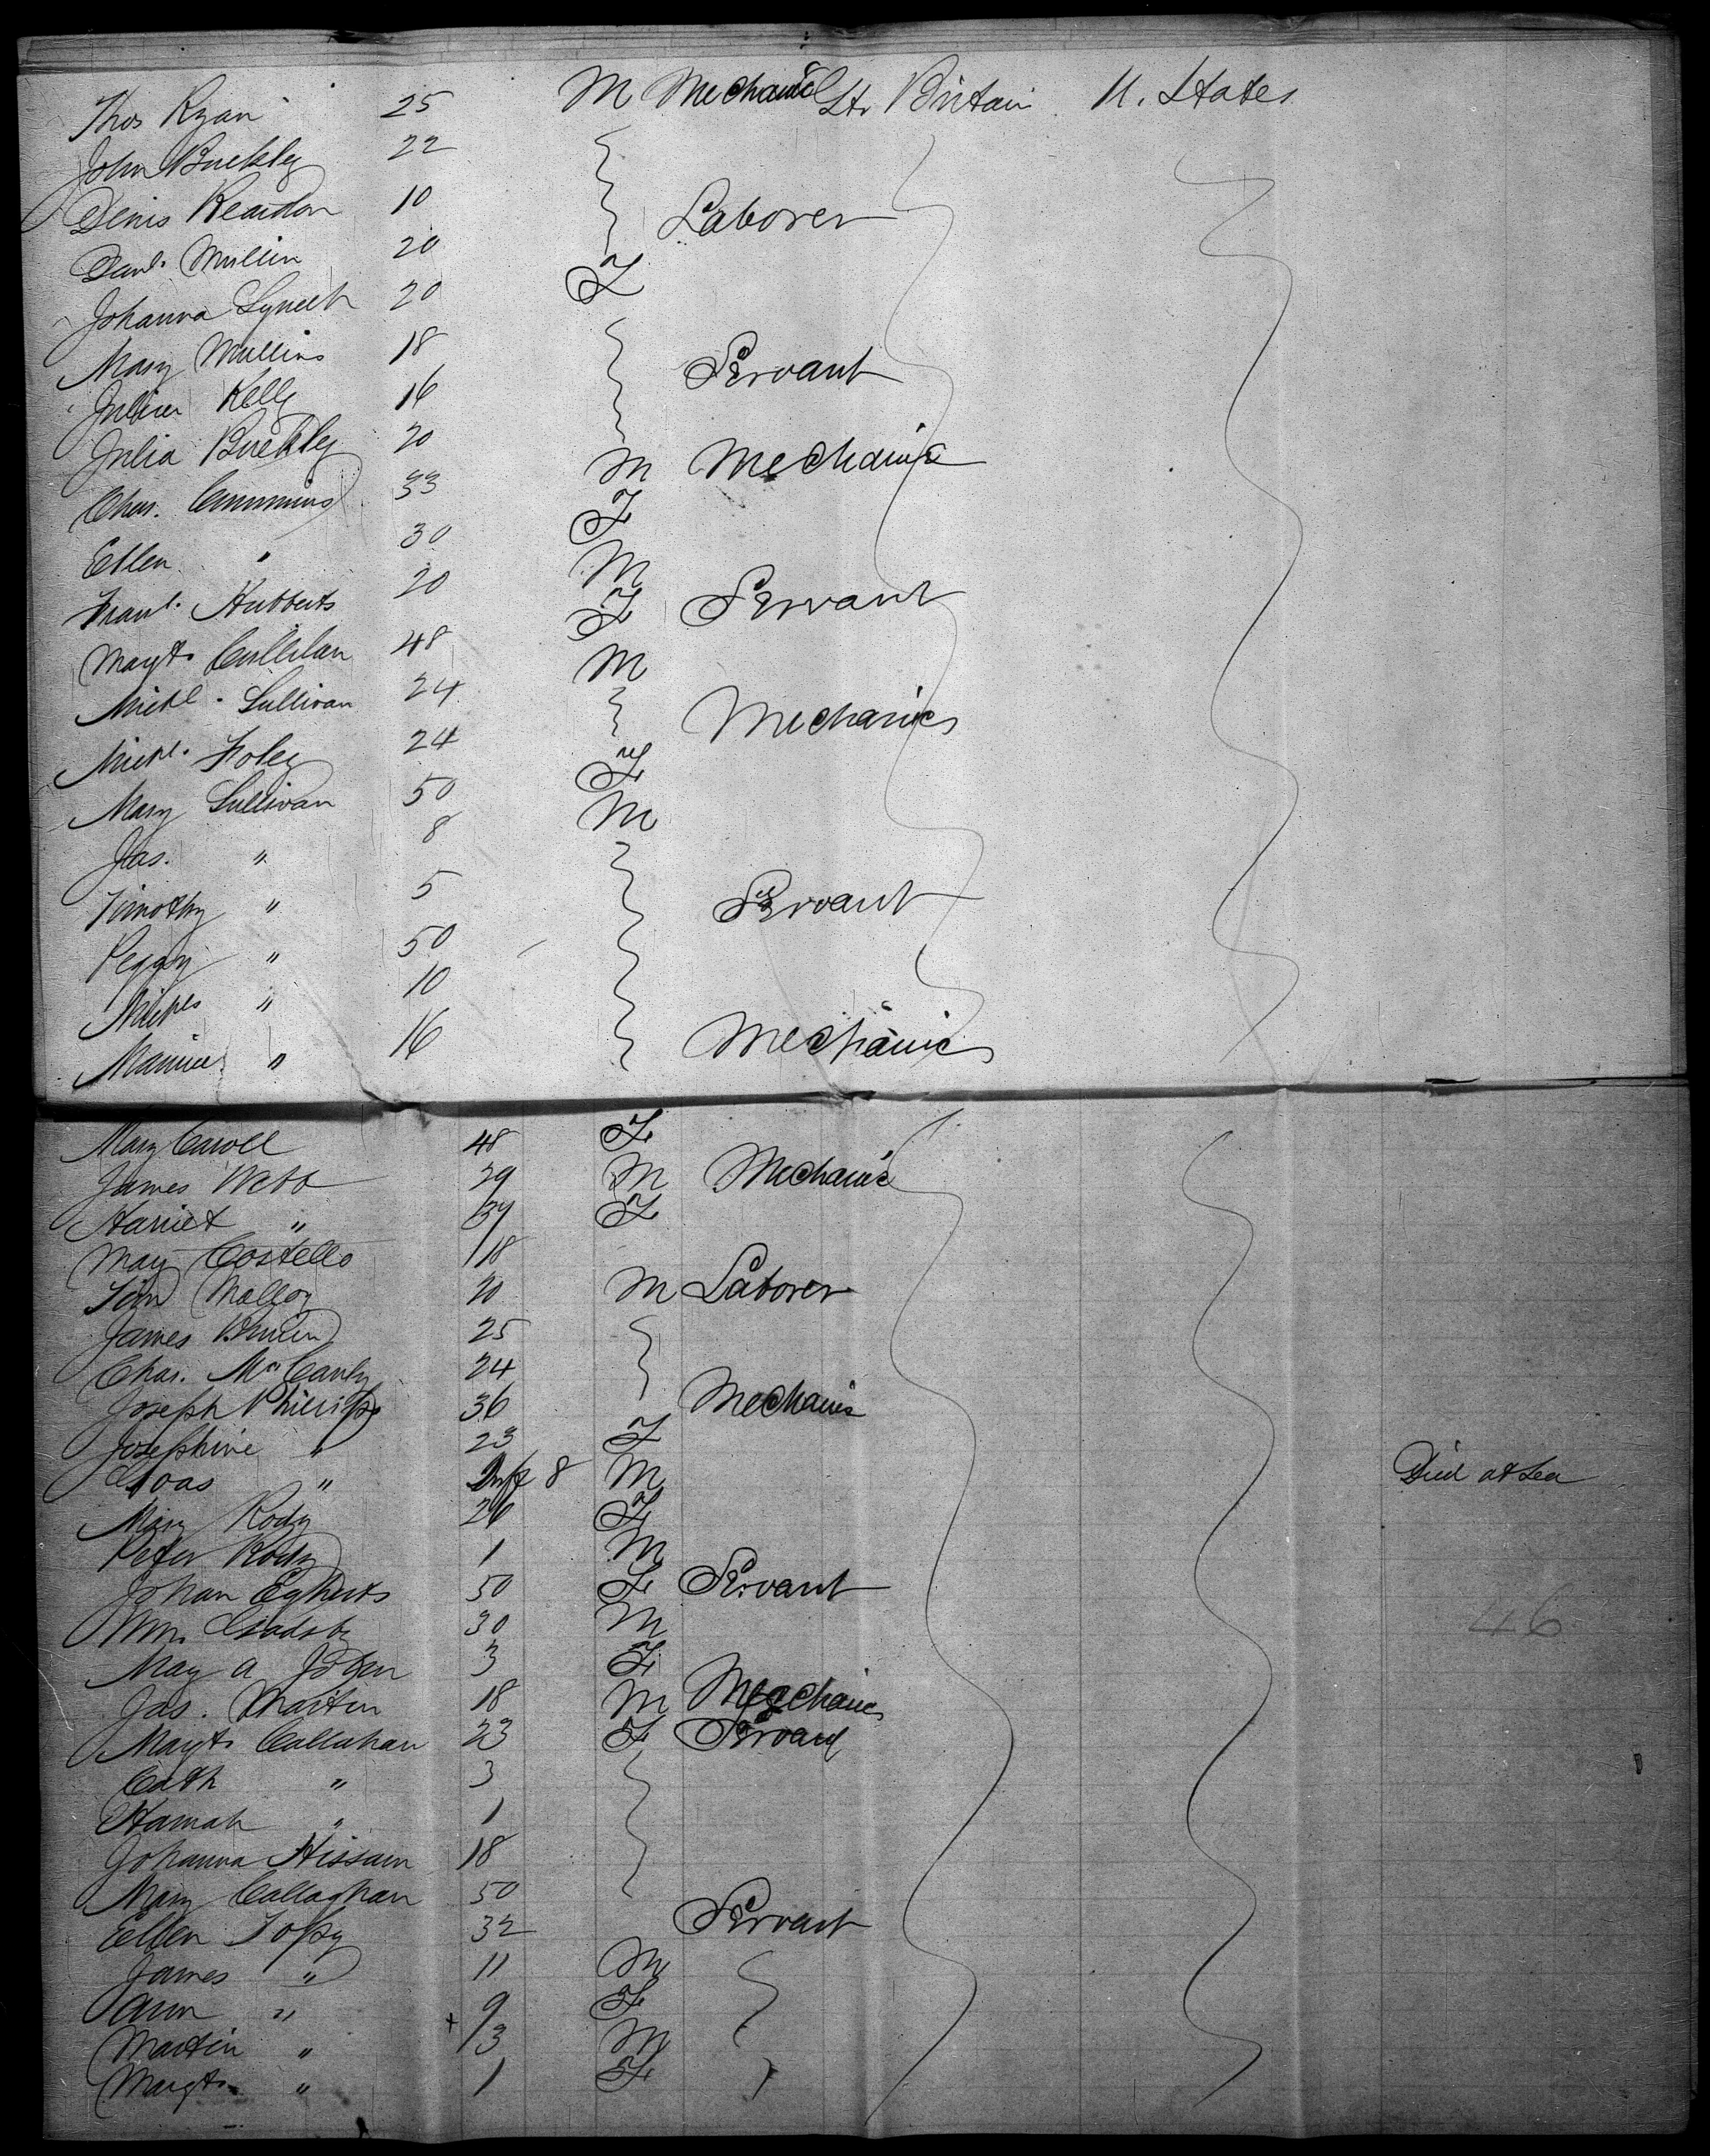 Thos Ryan 25 M Mechanic Gt. Britain U. States
John Buckley 22
Denis Reardon 10 Laborer
Danl. Mullin 20
Johanna Lynch 20 F
Mary Mullins 18 Servant
Julia Kelly 16
Julia Buckley 20
Chas. Cummins 33 M Mechanic
Ellen " 30 F
Hubberts 20 M
Margt. 48 F Servant
Michl. Sullivan 24 M
Michl. Foley 24 Mechanics
Mary Sullivan 50 F
Jas. " 8 M
Timothy " 5 Servant
Peggy " 50
" 10
" 16 Mechanic
Mary Caroll 48 F
James Webb 29 M Mechanic
Harriet " 37 F
May Costello 18
Tim Malloy 20 M Laborer
James 25
Chas. McCanly 24
Joseph Philips 36 Mechanic
Josephine " 23 F
" Inft 8 M Died at Sea
Mary Rody 26 F
Peter Rody 1 M
Johan 50 F Servant
Wm. Gadsby 30 M
May A 3 F
Jas. Martin 18 M Mechanic
Margt. Callahan 23 F Servant
Cath " 3
Hannah " 1
Johanna Hissam 18
Mary Callaghan 50
Ellen 32 Servant
James " 11 M
Ann " 9 F
Martin " 3 M
Margt. " 1 F
46